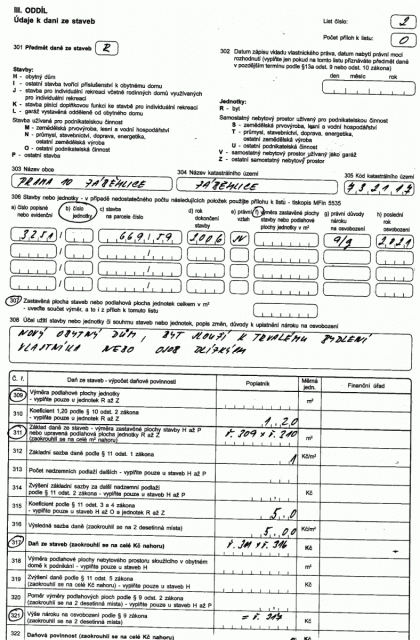 III. ODDÍL
Údaje k dani ze staveb
List číslo: 2
Počet příloh k listu: 0
301 Předmět daně ze staveb R
302 Datum zápisu vkladu vlastnického práva, datum nebytí právní moci
rozhodnutí (vyplňte jen pokud na tomto listu přiznáváte předmět daně
v pozdějším termínu podle §13a odst. 9 nebo odst. 10 zákona)
den měsíc rok
Stavby:
H - obytný dům
I - ostatní stavba tvořící příslušenství k obytnému domu
J - stavba pro individuální rekreaci včetně rodinných domů využívaných
pro individuální rekreaci
K - stavba plnící doplňkovou funkci ke stavbě pro individuální rekreaci
L - garáž vystavěná odděleně od obytného domu
Stavba užívaná pro podnikatelskou činnost
M - zemědělská prvovýroba, lesní a vodní hospodářství
N - průmysl, stavebnictví, doprava, energetika,
ostatní zemědělská výroba
O - ostatní podnikatelská činnost
P - ostatní stavba
Jednotky:
R - byt
Samostatný nebytový prostor užívaný pro podnikatelskou činnost
S - zemědělská prvovýroba, lesní a vodní hospodářství
T - průmysl, stavebnictví, doprava, energetika,
ostatní zemědělská výroba
U - ostatní podnikatelská činnost
V - samostatný nebytový prostor užívaný jako garáž
Z - ostatní samostatný nebytový prostor
303 Název obce
PRAHA 10 ZÁBĚHLICE
304 Název katastrální území
ZÁBĚHLICE
305 Kód katastrálního území
732117
306 Stavby nebo jednotky - v případě nedostatečného počtu následujících položek použijte přílohu k listu - tiskopis MFin 5535
a) číslo popisné
nebo evidenční
b) číslo
jednotky
c) stavba
na parcele číslo
d) rok
dokončení
stavby
e) právní
vztah
f) výměra zastavěné plochy
stavby nebo podlahové
plochy jednotky v m²
g) právní důvody
nároku
na osvobození
h) poslední
rok
osvobození
3251 / 669/59 2006 9/g 2021
307 Zastavěná plocha staveb nebo podlahová plocha jednotek celkem v m²
- uveďte součet výměr, a to i z příloh k tomuto listu
308 Účel užití stavby nebo jednotky či souhrnu staveb nebo jednotek, popis změn, důvody k uplatnění nároku na osvobození
NOVÝ OBYTNÝ DŮM, BYT SLOUŽÍ K TRVALÉMU BYDLENÍ
VLASTNÍKA NEBO OSOB BLÍZKÝCH
Č. ř. Daň ze staveb - výpočet daňové povinnosti Poplatník Měrná jedn. Finanční úřad
309 Výměra podlahové plochy jednotky
- vyplňte pouze u jednotek R až Z m²
310 Koeficient 1,20 podle § 10 odst. 2 zákona
- vyplňte pouze u jednotek R až Z 1,20
311 Základ daně ze staveb - výměra zastavěné plochy stavby H až P
nebo upravená podlahová plocha jednotky R až Z
(zaokrouhlí se na celé m² nahoru) ř. 309 x ř. 310 m²
312 Základní sazba daně podle § 11 odst. 1 zákona 1 Kč/m²
313 Počet nadzemních podlaží dalších - vyplňte pouze u staveb H až P
314 Zvýšení základní sazby za další nadzemní podlaží
podle § 11 odst. 2 zákona - vyplňte pouze u staveb H až P Kč
315 Koeficient podle § 11 odst. 3 a 4 zákona
- vyplňte pouze u staveb H až O a jednotek R až Z 5,0
316 Výsledná sazba daně (zaokrouhlí se na 2 desetinná místa) 5,00 Kč/m²
317 Daň ze staveb (zaokrouhlí se na celé Kč nahoru) ř. 311 x ř. 316 Kč
318 Výměra podlahové plochy nebytového prostoru sloužícího v obytném
domě k podnikání - vyplňte pouze u staveb H m²
319 Zvýšení daně podle § 11 odst. 5 zákona
(zaokrouhlí se na celé Kč nahoru) - vyplňte pouze u staveb H Kč
320 Poměr výměry podlahových ploch podle § 9 odst. 2 zákona
(zaokrouhlí se na 2 desetinná místa) - vyplňte pouze u staveb H
321 Výše nároku na osvobození podle § 9 zákona
(zaokrouhlí se na celé Kč nahoru) = ř. 317 Kč
322 Daňová povinnost (zaokrouhlí se na celé Kč nahoru) Kč